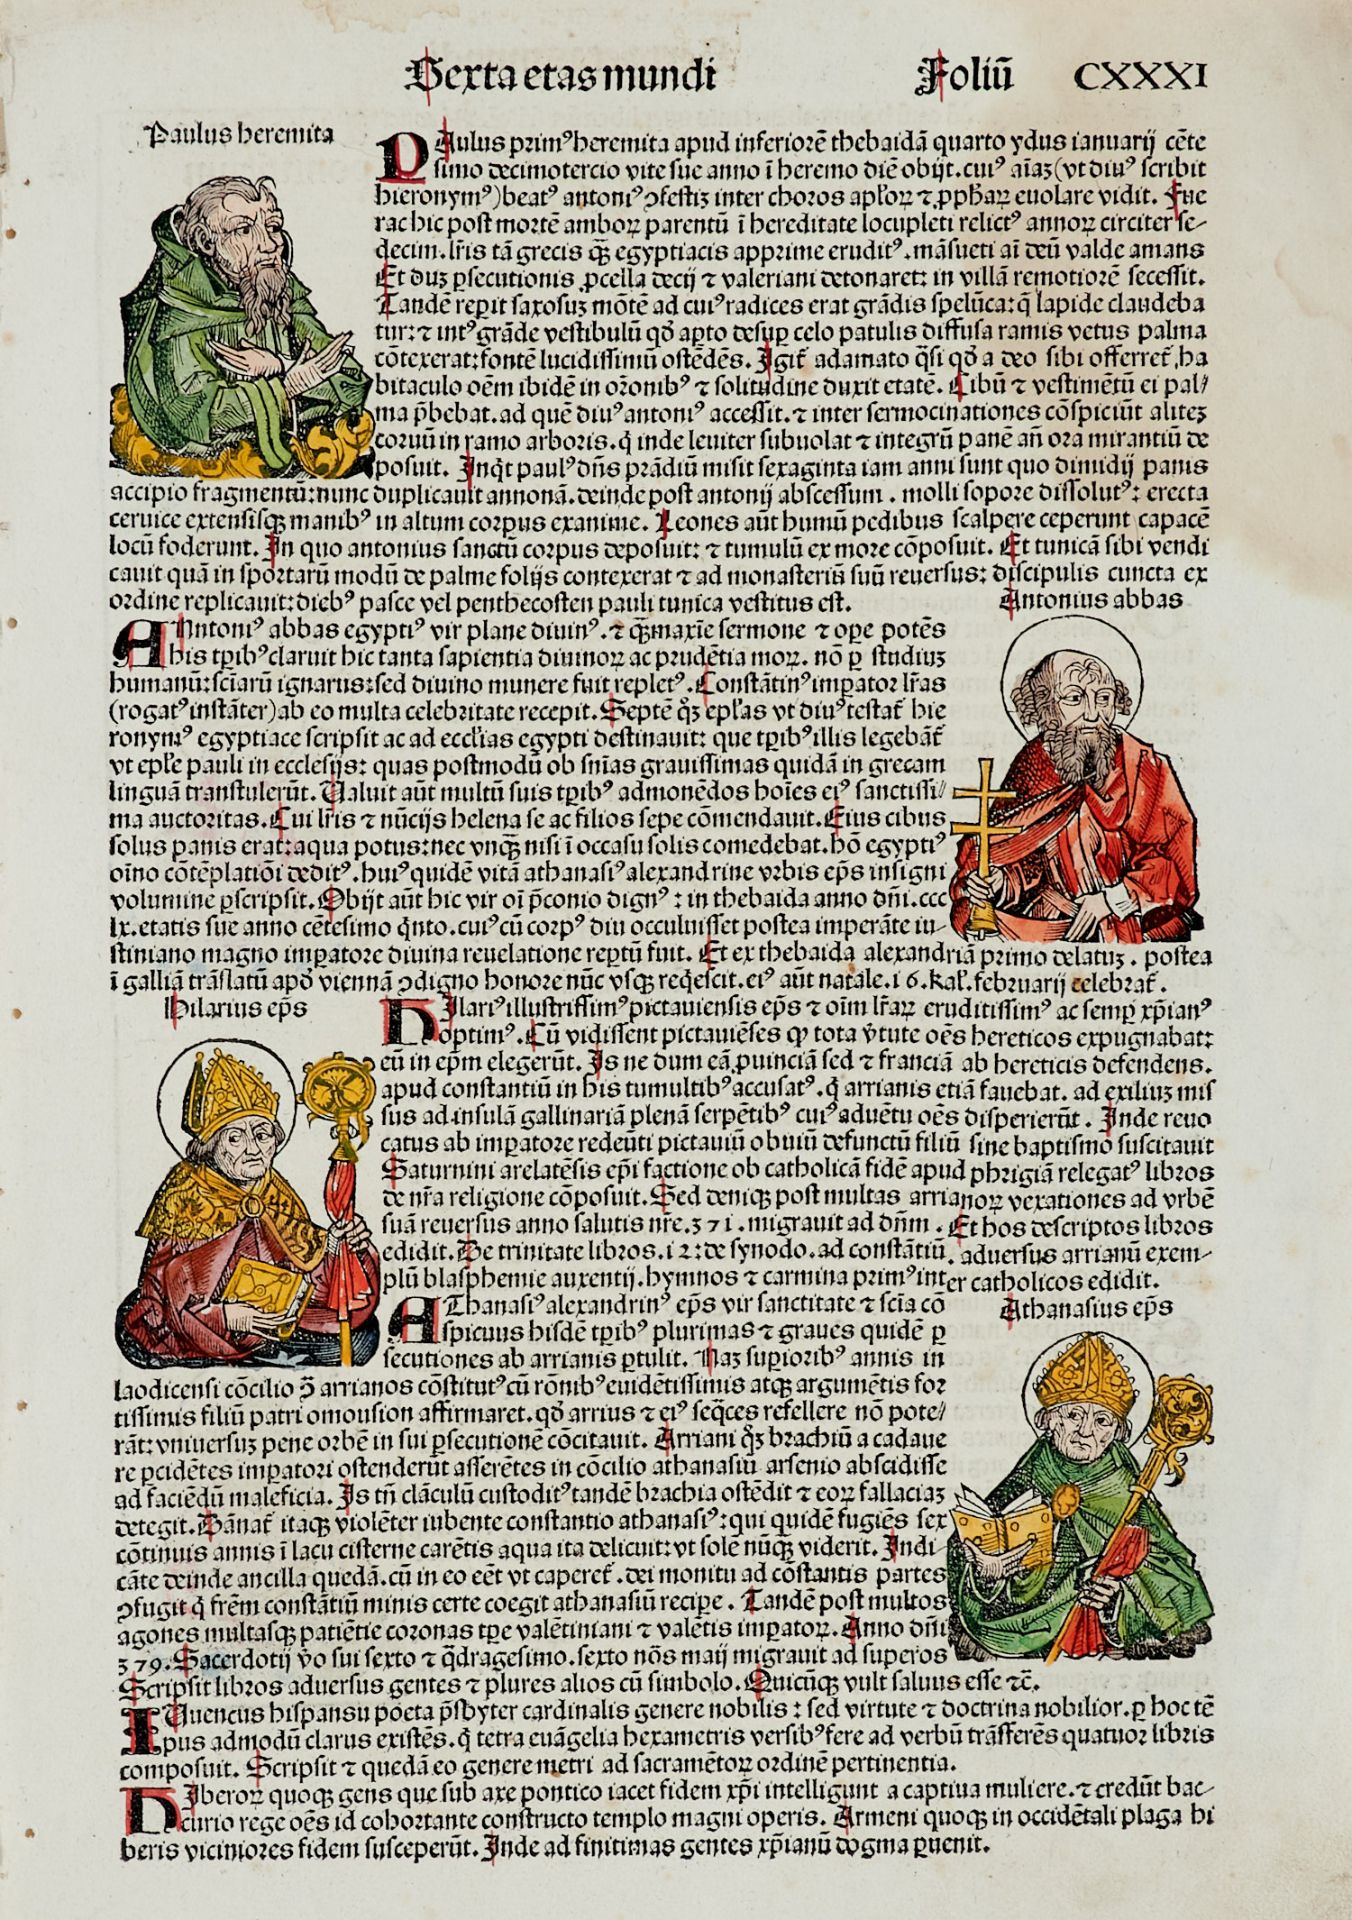 Sexta etas mundi Foliũ CXXXI
Paulus heremita
PAulus primꝰ heremita apud inferiorẽ thebaidã quarto ydus ianuarij cẽte
simo decimotercio vite sue anno ĩ heremo diẽ obijt. cuiꝰ aĩaʒ (vt diuꝰ scribit
hieronymꝰ) beatꝰ antoniꝰ ꝯfestiʒ inter choros apl̃oꝝ ⁊ ꝓphaꝝ euolare vidit. Fue
rac hic post mortẽ amboꝝ parentũ ĩ hereditate locupleti relictꝰ annoꝝ circiter se⸗
decim. lr̃is tã grecis qᷓʒ egyptiacis apprime eruditꝰ. mãsueti aĩ deũ valde amans
Et duʒ ꝑsecutionis ꝓcella decij ⁊ valeriani detonaret: in villã remotiorẽ secessit.
Tandẽ reꝑit saxosuʒ mõtẽ ad cuiꝰ radices erat grãdis spelũca: q̃ lapide claudeba
tur: ⁊ intꝰ grãde vestibulũ qđ aꝑto desuꝑ celo patulis diffusa ramis vetus palma
cõtexerat: fontẽ lucidissimũ ostẽdẽs. Igit᷑ adamato q̃si qđ a deo sibi offerret᷑, ha
bitaculo oẽm ibidẽ in or̃onibꝰ ⁊ solitudine duxit etatẽ. Cibũ ⁊ vestimẽtũ ei pal⸗
ma p̃bebat. ad quẽ diuꝰ antoniꝰ accessit. ⁊ inter sermocinationes cõspiciũt aliteʒ
coruũ in ramo arboris. q̃ inde leuiter subuolat ⁊ integrũ panẽ añ ora mirantiũ de
posuit. Inq̃t paulꝰ dñs prãdiũ misit sexaginta iam anni sunt quo dimidij panis
accipio fragmentũ: nunc duplicauit annonã. deinde post antonij abscessum. molli sopore dissolutꝰ: erecta
ceruice extensisqʒ manibꝰ in altum corpus exanime. Leones aũt humũ pedibus scalpere ceperunt capacẽ
locũ foderunt. In quo antonius sanctũ corpus deposuit: ⁊ tumulũ ex more cõposuit. Et tunicã sibi vendi
cauit quã in sportarũ modũ de palme folijs contexerat ⁊ ad monasteriũ suũ reuersus: discipulis cuncta ex
ordine replicauit: diebꝰ pasce vel penthecosten pauli tunica vestitus est.
Antonius abbas
ANtoniꝰ abbas egyptiꝰ vir plane diuinꝰ. ⁊ qᷓʒ maxĩe sermone ⁊ oꝑe potẽs
his tꝑibꝰ claruit hic tanta sapientia diuinoꝝ ac prudẽtia moꝝ. nõ ꝑ studiuʒ
humanũ: sciãrũ ignarus: sed diuino munere fuit repletꝰ. Constãtinꝰ imꝑator lr̃as
(rogatꝰ instãter) ab eo multa celebritate recepit. Septẽ q̃ʒ epl̃as vt diuꝰ testat᷑ hie
ronymꝰ egyptiace scripsit ac ad eccl̃ias egypti destinauit: que tꝑibꝰ illis legebãt᷑
vt epl̃e pauli in ecclesijs: quas postmodũ ob sñias grauissimas quidã in grecam
linguã transtulerũt. Ualuit aũt multũ suis tꝑibꝰ admonẽdos hoĩes eiꝰ sanctissi⸗
ma auctoritas. Cui lr̃is ⁊ nũcijs helena se ac filios sepe cõmendauit. Eius cibus
solus panis erat: aqua potus: nec vnqᷓʒ nisi ĩ occasu solis comedebat. hõ egyptiꝰ
oĩno cõtẽplatiõi deditꝰ. huiꝰ quidẽ vitã athanasiꝰ alexandrine vrbis ep̃s insigni
volumine ꝑscripsit. Obijt aũt hic vir oĩ p̃conio dignꝰ: in thebaida anno dñi. ccc
lx. etatis sue anno cẽtesimo q̃nto. cuiꝰ cũ corpꝰ diu occuluisset postea imperãte iu⸗
stiniano magno imꝑatore diuina reuelatione reꝑtũ fuit. Et ex thebaida alexandriã primo delatuʒ. postea
ĩ galliã trãslatũ apđ viennã ꝯdigno honore nũc vsqʒ req̃escit. eiꝰ aũt natale. 16. kal̃. februarij celebrat᷑.
Hilarius ep̃s
HIlariꝰ illustrissimꝰ pictauiensis ep̃s ⁊ oĩm lr̃aꝝ eruditissimꝰ ac semꝑ xp̃ianꝰ
optimꝰ. Cũ vidissent pictauiẽses ꝙ tota v̓tute oẽs hereticos expugnabat:
eũ in ep̃m elegerũt. Is ne dum eã ꝓuinciã sed ⁊ franciã ab hereticis defendens.
apud constantiũ in his tumultibꝰ accusatꝰ. q̃ arrianis etiã fauebat. ad exiliuʒ mis
sus ad insulã gallinariã plenã serpẽtibꝰ cuiꝰ aduẽtu oẽs disperierũt. Inde reuo
catus ab imꝑatore redeũti pictauiũ obuiũ defunctũ filiũ sine baptismo suscitauit
Saturnini arelatẽsis ep̃i factione ob catholicã fidẽ apud phrigiã relegatꝰ libros
de nr̃a religione cõposuit. Sed deniqʒ post multas arrianoꝝ vexationes ad vrbẽ
suã reuersus anno salutis nr̃e. 371. migrauit ad dñm. Et hos descriptos libros
edidit. De trinitate libros. 12: de synodo. ad constãtiũ. aduersus arrianũ exem⸗
plũ blasphemie auxentij. hymnos ⁊ carmina primꝰ inter catholicos edidit.
Athanasius ep̃s
AThanasiꝰ alexandrinꝰ ep̃s vir sanctitate ⁊ scĩa cõ
spicuus hisdẽ tꝑibꝰ plurimas ⁊ graues quidẽ ꝑ
secutiones ab arrianis ꝑtulit. Naʒ suꝑioribꝰ annis in
laodicensi cõcilio ꝯ̃ arrianos cõstitutꝰ cũ rõnibꝰ euidẽtissimis atqʒ argumẽtis for
tissimis filiũ patri omousion affirmaret. qđ arrius ⁊ eiꝰ seq̃ces refellere nõ pote⸗
rãt: vniuersuʒ pene orbẽ in sui ꝑsecutionẽ cõcitauit. Arriani q̃ʒ brachiũ a cadaue
re ꝑcidẽtes imꝑatori ostenderũt asserẽtes in cõcilio athanasiũ arsenio abscidisse
ad faciẽdũ maleficia. Is tñ clãculũ custoditꝰ tandẽ brachia ostẽdit ⁊ eoꝝ fallaciaʒ
detegit. Dãnat᷑ itaqʒ violẽter iubente constantio athanasiꝰ: qui quidẽ fugiẽs sex
cõtinuis annis ĩ lacu cisterne carẽtis aqua ita delicuit: vt solẽ nũqʒ viderit. Indi⸗
cãte deinde ancilla quedã. cũ in eo eẽt vt caperet᷑. dei monitu ad cõstantis partes
ꝯfugit q̃ fr̃em constãtiũ minis certe coegit athanasiũ reciꝑe. Tandẽ post multos
agones multasqʒ patiẽtie coronas tꝑe valẽtiniani ⁊ valẽtis imꝑatoꝝ. Anno dñi
379. Sacerdotij v̓o sui sexto ⁊ q̃dragesimo. sexto nõs maij migrauit ad superos
Scripsit libros aduersus gentes ⁊ plures alios cũ simbolo. Quicũqʒ vult saluus esse ⁊c̃.
IUuencus hispansu poeta p̃sbyter cardinalis genere nobilis: sed virtute ⁊ doctrina nobilior. ꝑ hoc tẽ
pus admodũ clarus existẽs. q̃ tetra euãgelia hexametris versibꝰ fere ad verbũ trãsferẽs quatuor libris
composuit. Scripsit ⁊ quedã eo genere metri ad sacramẽtoꝝ ordinẽ pertinentia.
HIberoꝝ quoqʒ gens que sub axe pontico iacet fidem xp̃i intelligunt a captiua muliere. ⁊ credũt bac⸗
curio rege oẽs id cohortante constructo templo magni operis. Armeni quoqʒ in occidẽtali plaga hi
beris viciniores fidem susceperũt. Inde ad finitimas gentes xp̃ianũ dogma ꝑuenit.